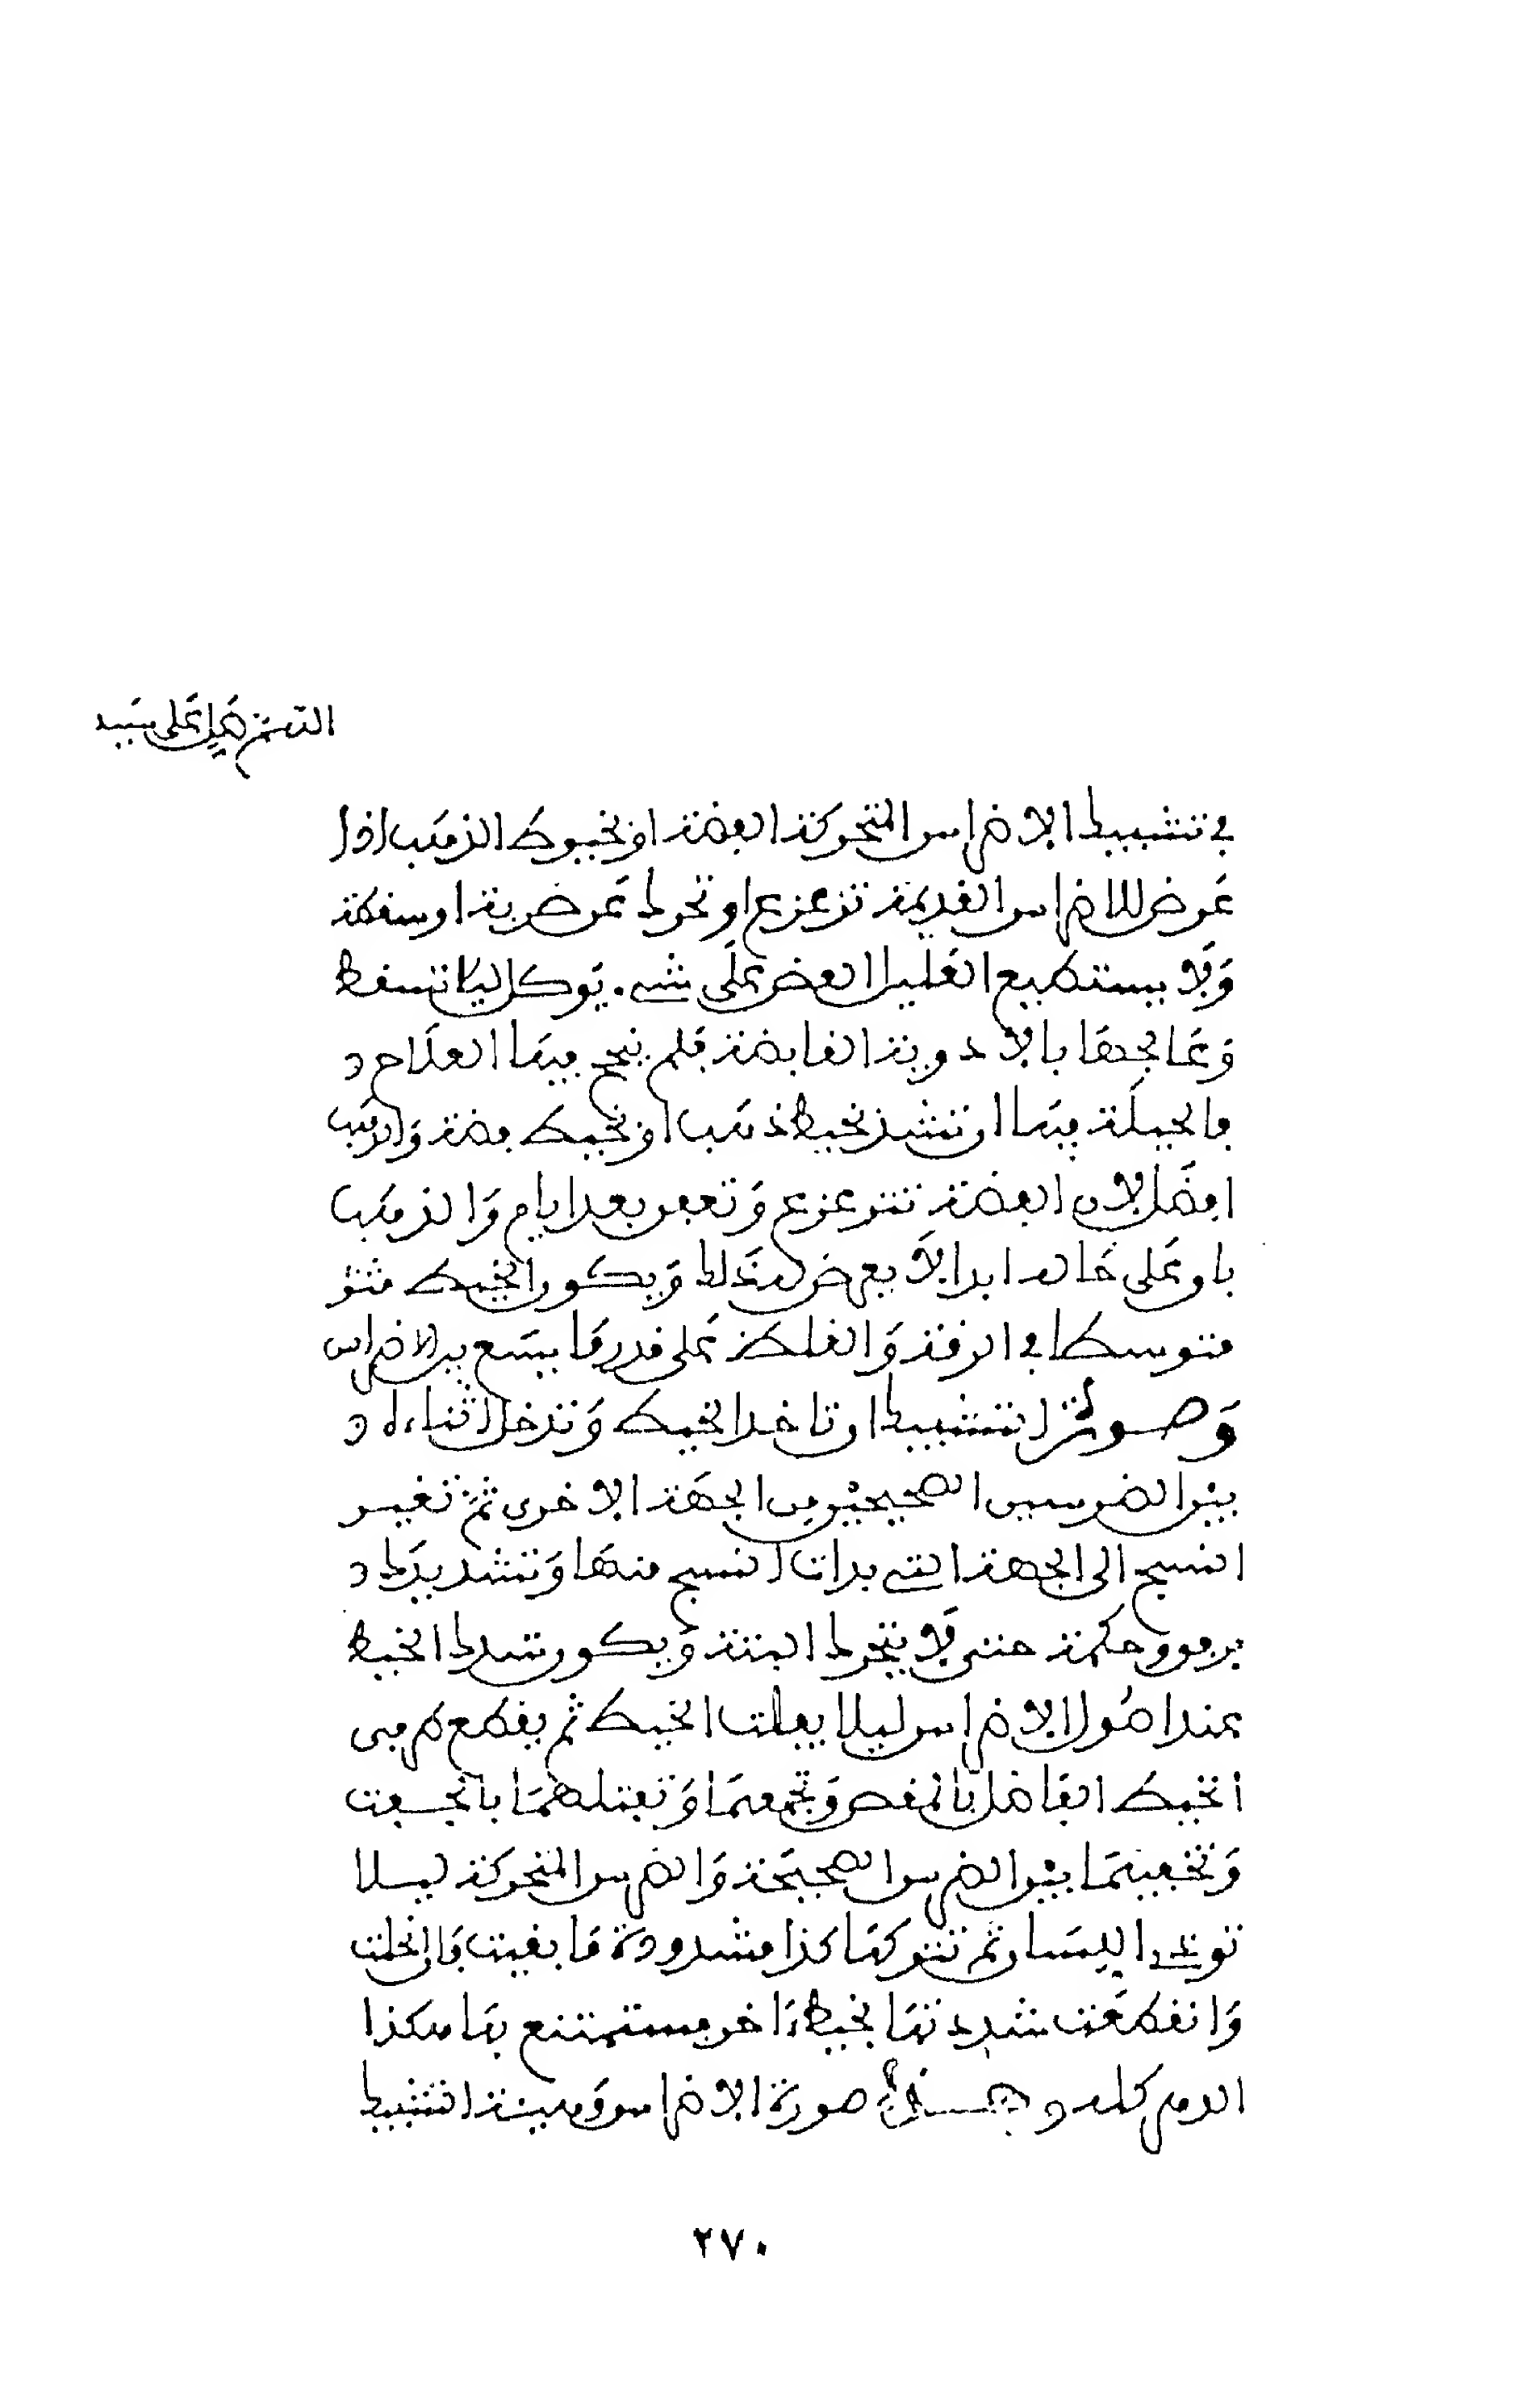 اللهم صل على سيد
في تشبيك الاضراس المتحركة الفضة او بخيوط الذهب اذا
عرض للاضراس القديمة تزعزع او تحرك عن ضربة او سقطة
ولا يستطيع العليل العض على شيء يوكل ليلا تسقط
وعالجتها بالادوية القابضة فلم ينجح فيها العلاج
فالحيلة فيها ان تشد بخيط ذهب او بخيط فضة والذهب
افضل لان الفضة تتزعزع وتعفن بعد ايام والذهب
باق على حاله ابدا لا يعرض له ذلك ويكون الخيط
متوسطا في الرقة والغلظ على قدر ما يسع بين الاضراس
وصورة التشبيك ان تاخذ الخيط وتدخل اثناءه
بين الضرسين الصحيحين من الجهة الاخرى ثم تعيد
النسج الى الجهة التي بدات النسج منها وتشد يدك
برفق وحكمة حتى لا يتحرك البتة ويكون شدك الخيط
عند اصول الاضراس ليلا يفلت الخيط ثم يقطع طرفي
الخيط الفاضل بالمقص وتجمعهما وتفتلهما بالجفت
وتخفيهما بين الضرس الصحيحة والضرس المتحركة ليلا
توذي اللسان ثم تتركها كذا مشدودة ما بقيت فان انحلت
وانقطعت شددتها بخيط اخر فيستمتع بها هكذا
الدهر كله وهذه صورة الاضراس وهيئة التشبيك
٢٧٠